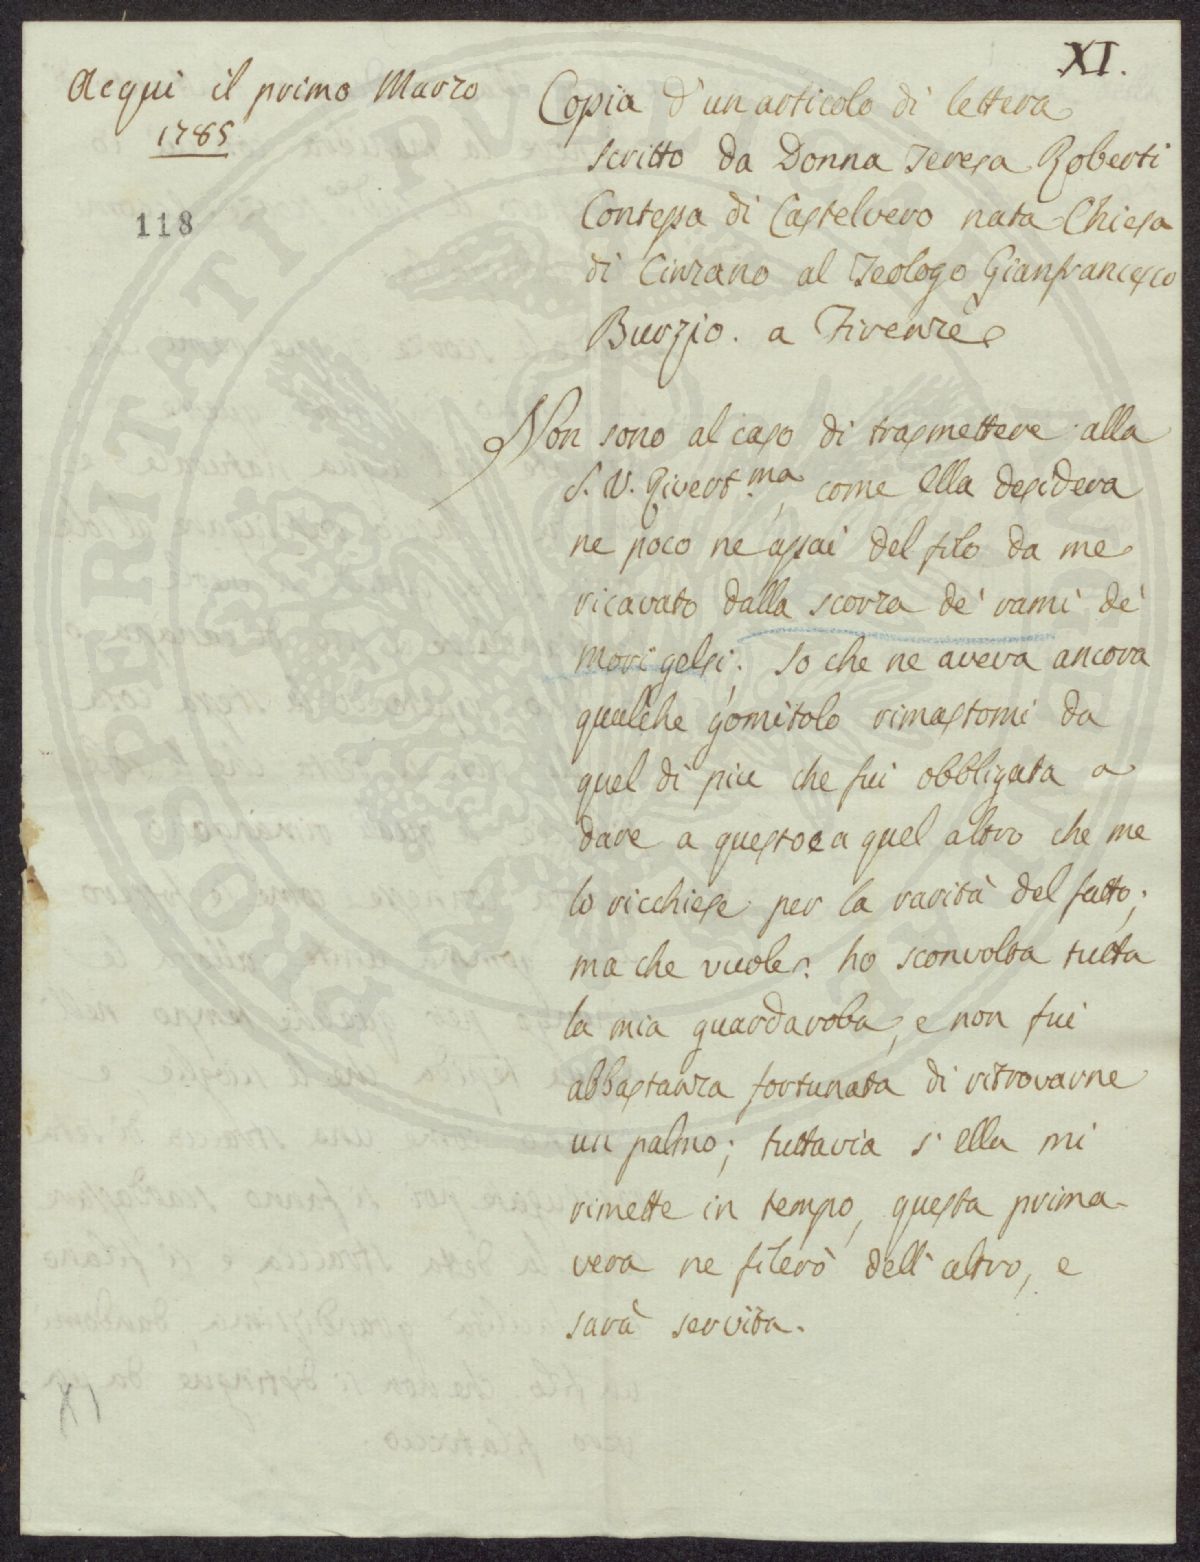 XI.
Acqui il primo Marzo
1785
118
Copia d'un articolo di lettera
scritto da Donna Teresa Roberti
Contessa di Castelvero nata Chiesa
di Cinzano al Teologo Gianfrancesco
Burzio. a Firenze
Non sono al caso di trasmettere alla
S. V. Rivert.ma, come Ella desidera
ne poco ne assai del filo da me
ricavato dalla scorza de' rami de'
mori gelsi. So che ne aveva ancora
qualche gomitolo rimastomi da
quel di piu che fui obbligata a
dare a questo e a quel altro che me
lo ricchiese per la rarità del fatto;
ma che vuole? ho sconvolta tutta
la mia guardaroba, e non fui
abbastanza fortunata di ritrovarne
un palmo; tuttavia s'ella mi
rimette in tempo, questa prima-
vera ne filerò dell'altro, e
sarà servita.
XI
PROSPERITATI PVBLICAE